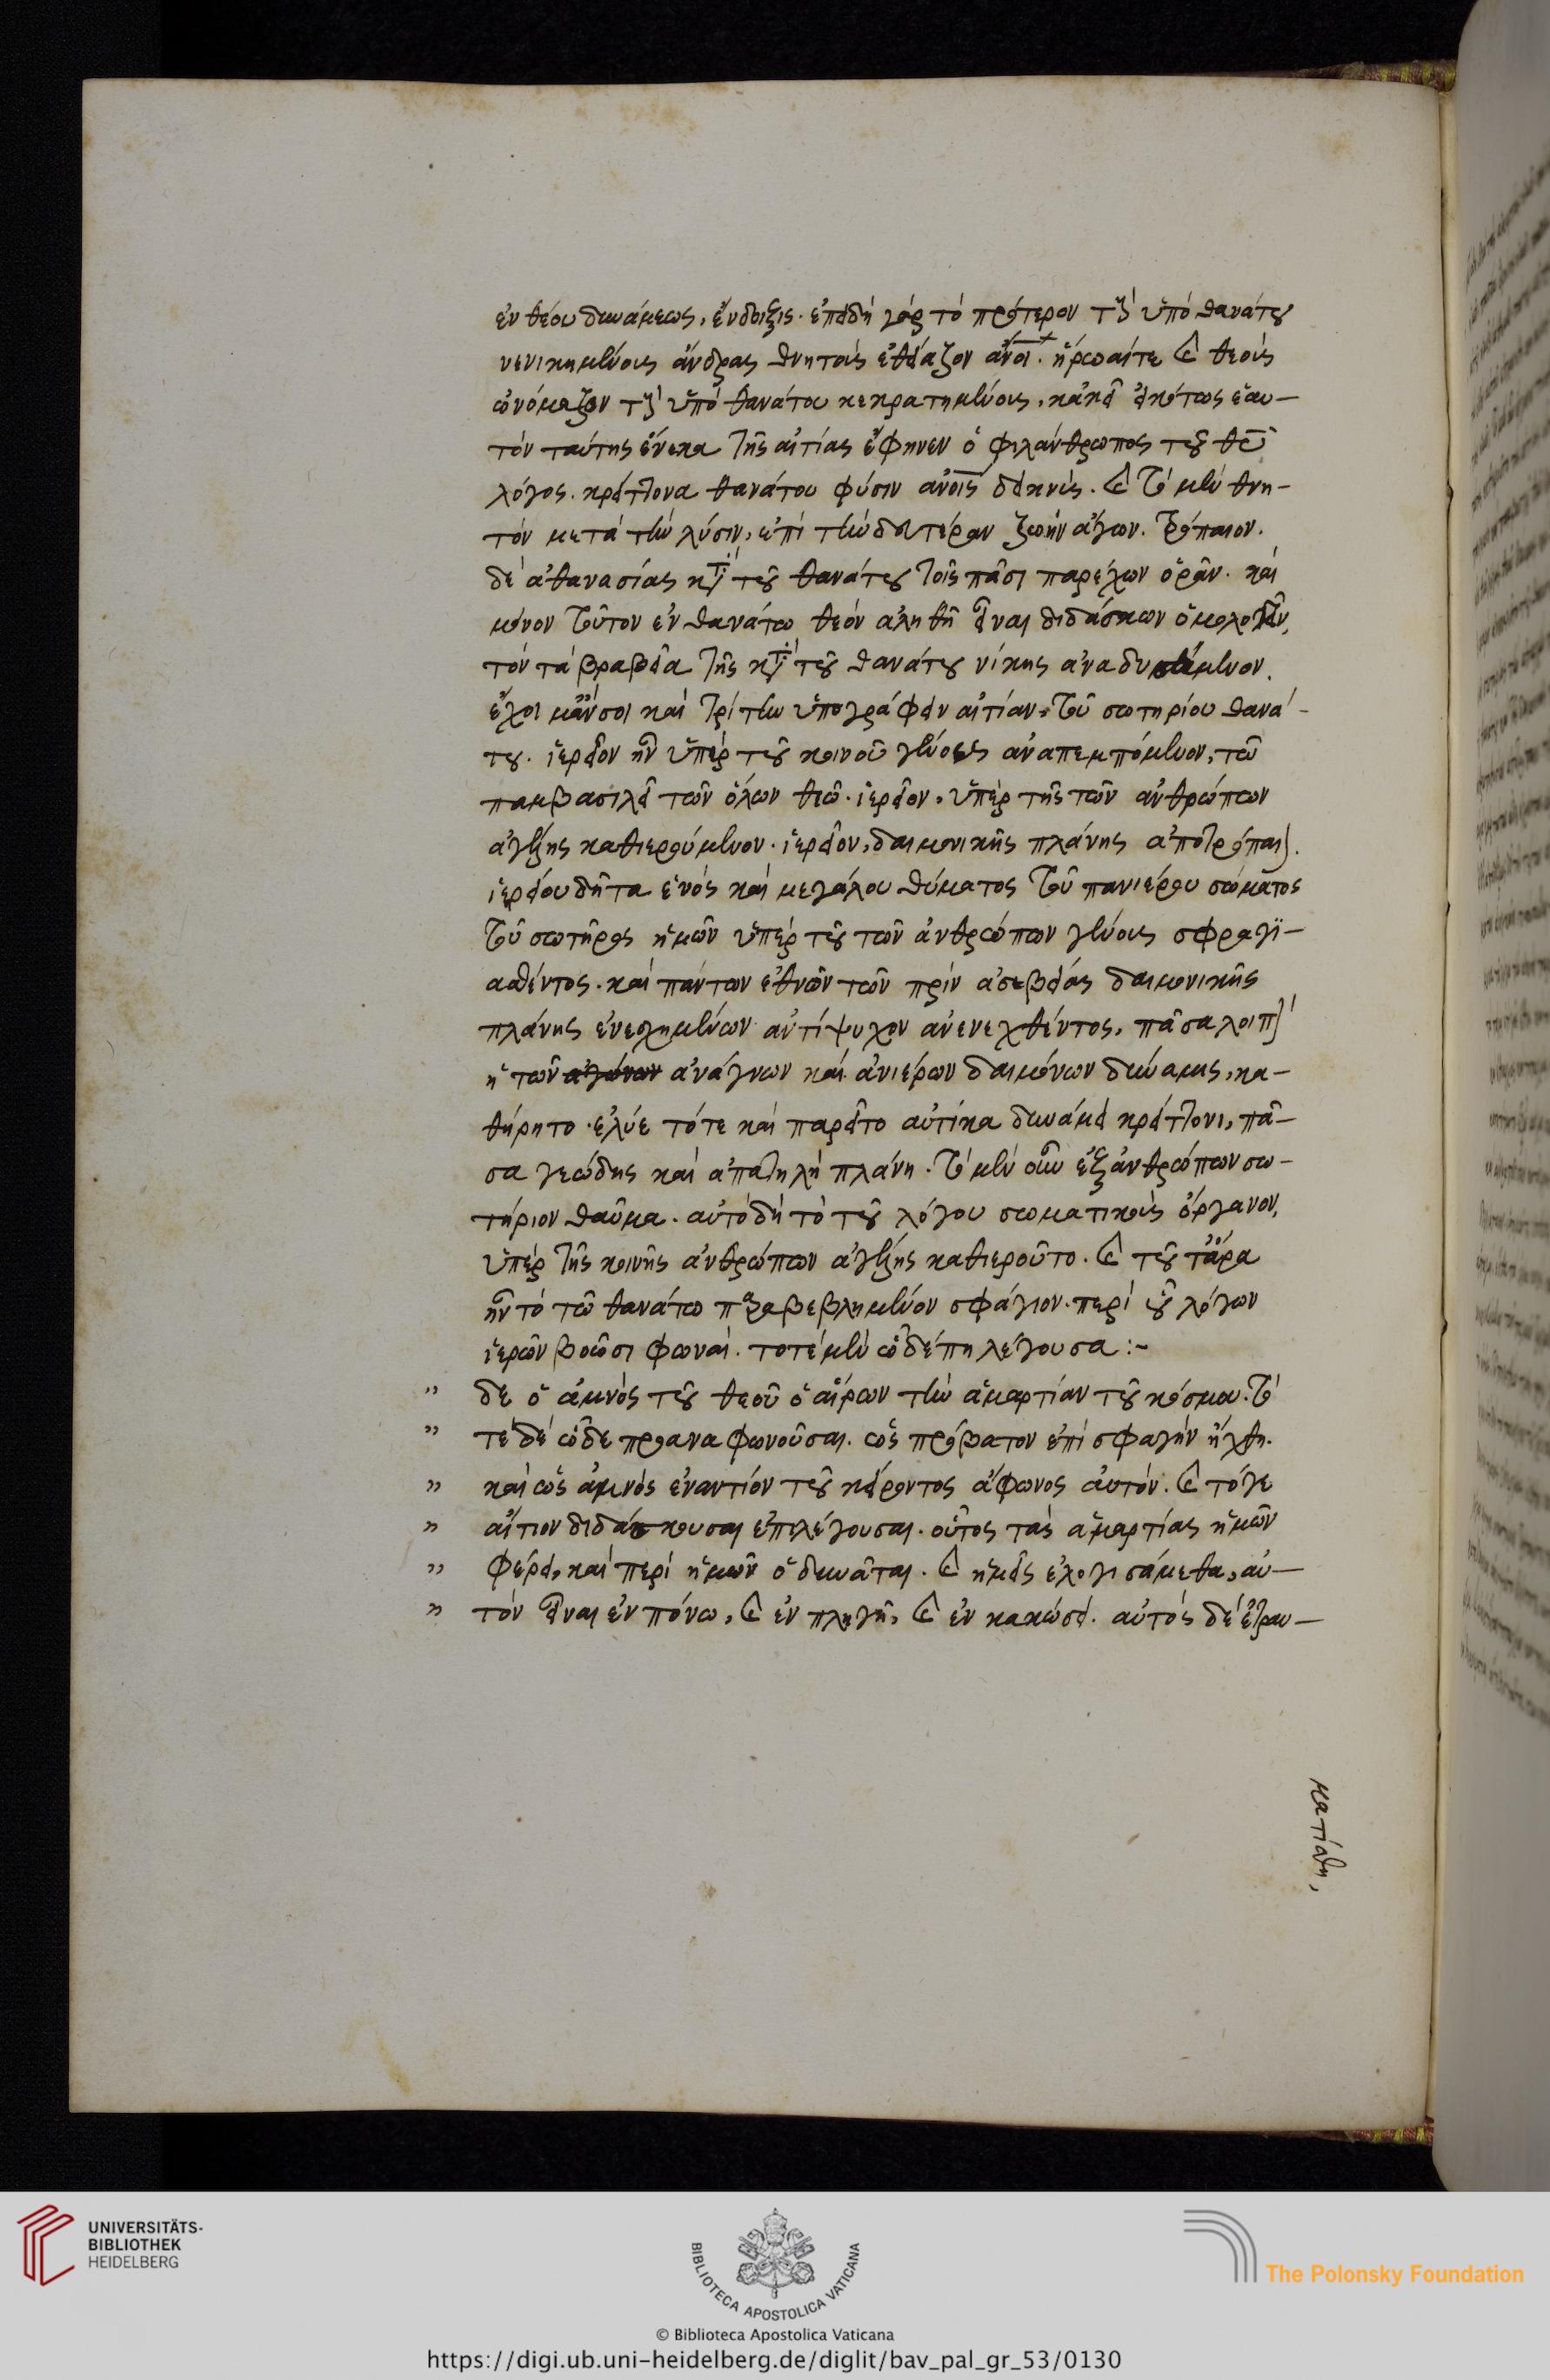 ἐν θέου δυνάμεως, ἔνδειξις. ἐπειδὴ γάρ τὸ πρότερον τοὺς ὑπὸ θανάτου
νενικημένοις ἄνδρας θνητοὺς ἐθείαζον ἄνοι. ἥρωαίτε καὶ θεοὺς
ὠνόμαζον τοὺς ὑπὸ θανάτου κεκρατημένους, κἀκεῖ εἰκότως ἑαυ-
τὸν ταύτης ἕνεκα τῆς αἰτίας ἔφηνεν ὁ φιλάνθρωπος τοῦ θῦ
λόγος. κρείττονα θανάτου φύσιν ἀνοις δεικνὺς. καὶ τὸ μὲν θνη-
τὸν μετὰ τὴν λύσιν, ἐπὶ τὴν δευτέραν ζωὴν ἄγων. τρόπαιον.
δὲ ἀθανασίας κατὰ τοῦ θανάτου τοῖς πᾶσι παρέχων ὁρᾶν. καὶ
μόνον τοῦτον ἐν θανάτω θεὸν ἀληθῆ εἶναι διδάσκων ὁμολογεῖν,
τὸν τὰ βραβεῖα τῆς κατὰ τοῦ θανάτου νίκης ἀναδυσάμενον.
ἔχοι μἄν σοι καὶ τρίτην ὑπογράφειν αἰτίαν. τοῦ σωτηρίου θανά-
του. ἱερεῖον ἦν ὑπὲρ τοῦ κοινοῦ γένους ἀναπεμπόμενον, τῶ
παμβασιλεῖ τῶν ὅλων θεῶ. ἱερεῖον, ὑπὲρ τῆς τῶν ἀνθρώπων
ἀγέλης καθιερούμενον. ἱερεῖον, δαιμονικῆς πλάνης ἀποτρόπαιον.
ἱερείου δῆτα ἑνὸς καὶ μεγάλου θύματος τοῦ πανιέρου σώματος
τοῦ σωτῆρος ἡμῶν ὑπὲρ τοῦ τῶν ἀνθρώπων γένους σφραγϊ-
ασθέντος. καὶ πάντων ἐθνῶν τῶν πρὶν ἀσεβείας δαιμονικῆς
πλάνης ἐνεσχημένων ἀντίψυχον ἀνενεχθέντος, πᾶσα λοιπὸν
ἡ τῶν ἀνάγνων καὶ ἀνιέρων δαιμόνων δύναμις, κα-
θήρητο. ἐλύε τότε καὶ παρεῖτο αὐτίκα δυνάμει κρείττονι, πᾶ-
σα γεώδης καὶ ἀπατηλὴ πλάνη. τὸ μὲν οὖν ἐξ ἀνθρώπων σω-
τήριον θαῦμα. αὐτὸ δὴ τὸ τοῦ λόγου σωματικοὺς ὄργανον,
ὑπὲρ τῆς κοινῆς ἀνθρώπων ἀγέλης καθιεροῦτο. καὶ τοῦτ ἄρα
ἦν τὸ τῶ θανάτω παραβεβλημένον σφάγιον. περὶ οὗ λόγων
ἱερῶν βοῶσι φωναὶ. τοτὲ μὲν ὧδέ πη λέγουσα :-
" δε ὁ ἀμνὸς τοῦ θεοῦ ὁ αἴρων τὴν ἁμαρτίαν τοῦ κόσμου. τὸ
" τὲ δὲ ὧδε προαναφωνοῦσαι. ὡς πρόβατον ἐπὶ σφαγὴν ἤχθη.
" καὶ ὡς ἀμνὸς ἐναντίον τοῦ κείροντος ἄφωνος αὐτὸν. καὶ τόγε
" αἴτιον διδάσκουσαι ἐπιλέγουσαι. οὗτος τὰς ἁμαρτίας ἡμῶν
" φέρει, καὶ περὶ ἡμῶν ὀδυνᾶται. καὶ ἡμεῖς ἐλογισάμεθα, αὐ-
" τὸν εἶναι ἐν πόνω, καὶ ἐν πληγῆ, καὶ ἐν κακώσει. αὐτὸς δὲ ἐτραυ-
ματίσθη,
UNIVERSITÄTS-
BIBLIOTHEK
HEIDELBERG
BIBLIOTECA APOSTOLICA VATICANA
The Polonsky Foundation
© Biblioteca Apostolica Vaticana
https://digi.ub.uni-heidelberg.de/diglit/bav_pal_gr_53/0130